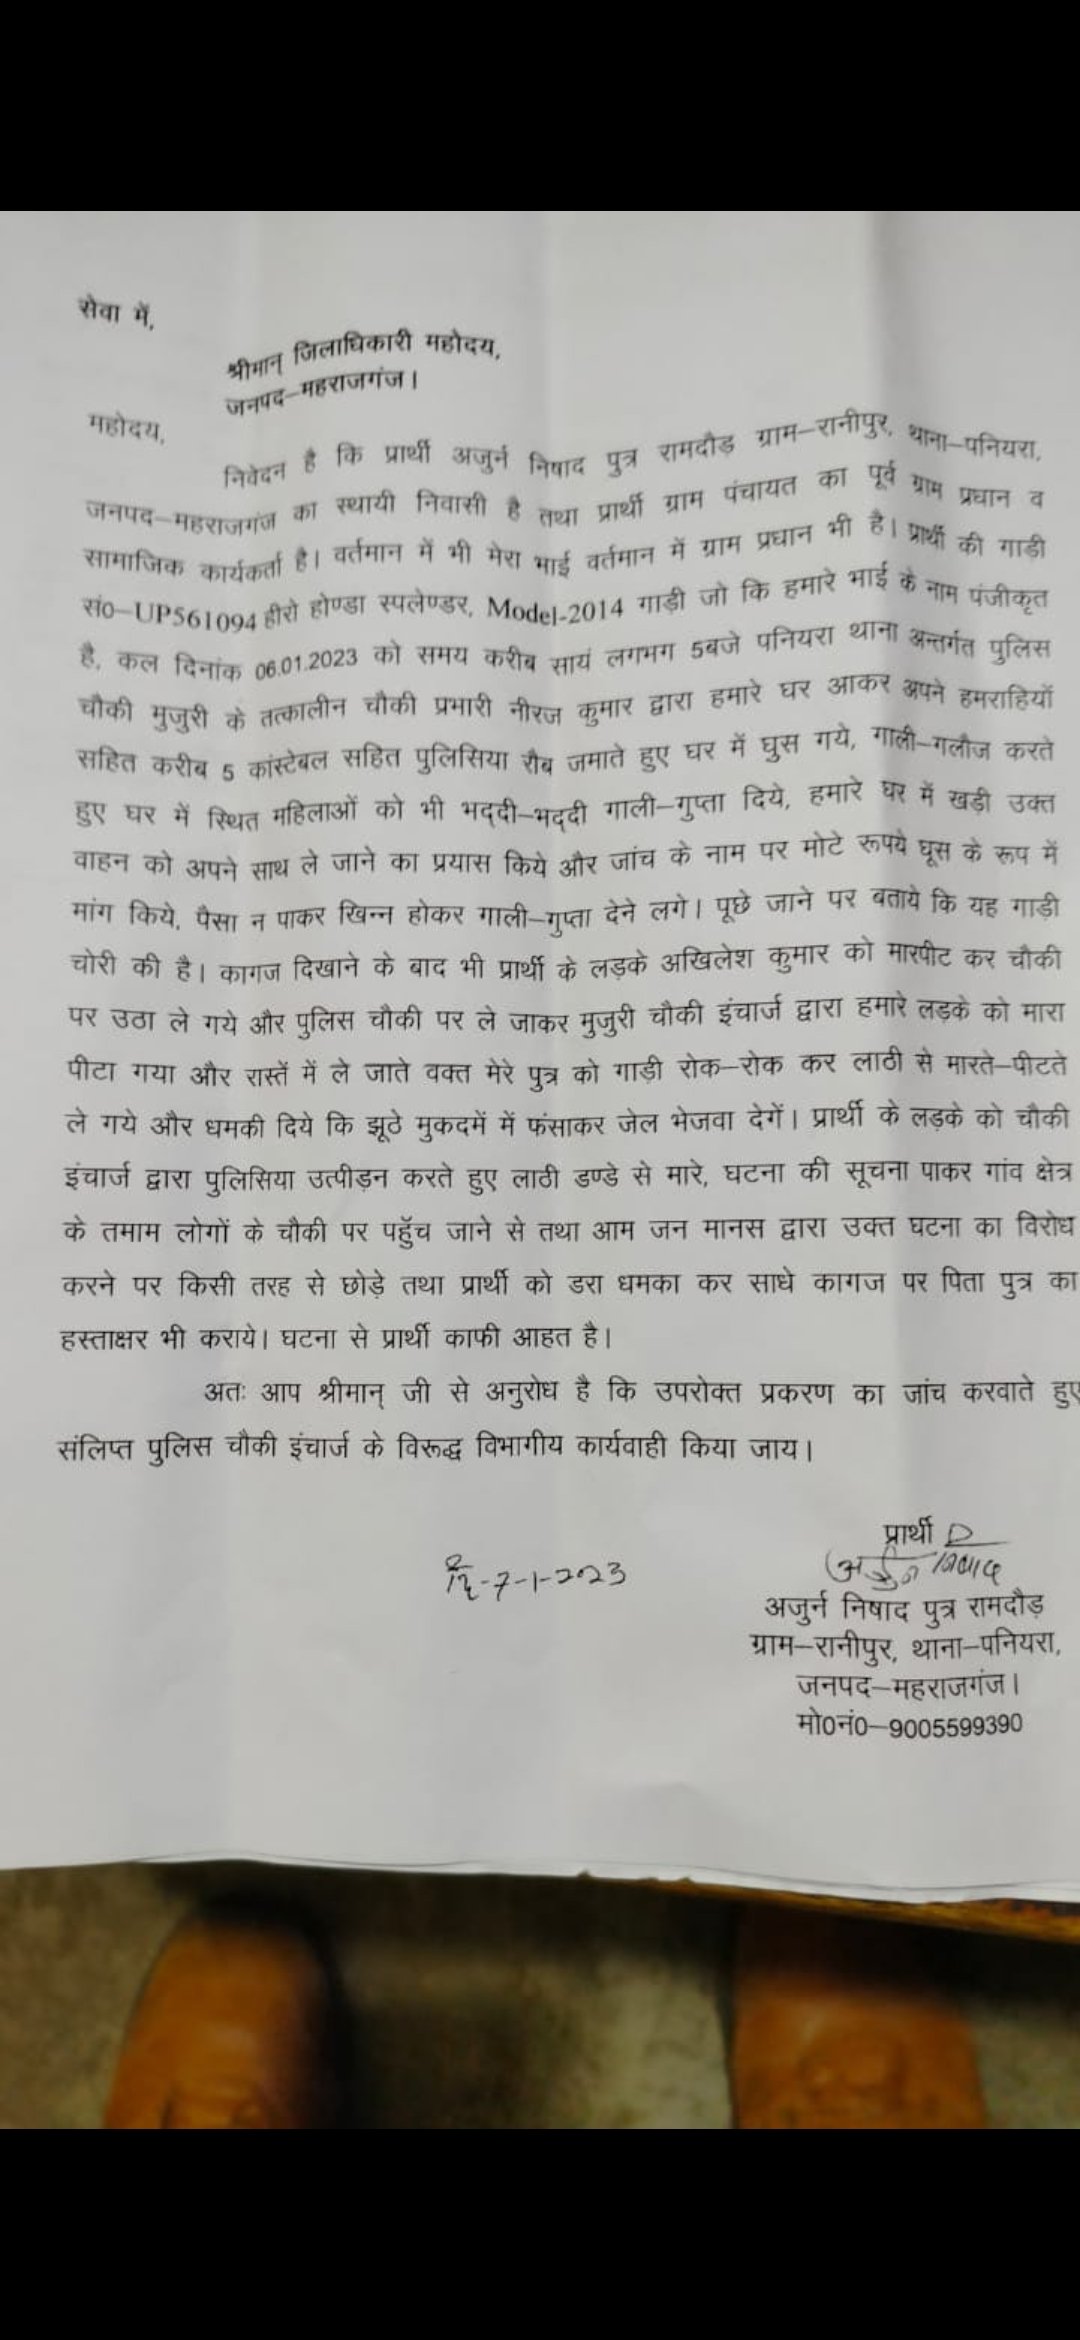 सेवा में,
श्रीमान् जिलाधिकारी महोदय,
जनपद–महराजगंज।
महोदय,
निवेदन है कि प्रार्थी अजुर्न निषाद पुत्र रामदौड़ ग्राम–रानीपुर, थाना–पनियरा,
जनपद–महराजगंज का स्थायी निवासी है तथा प्रार्थी ग्राम पंचायत का पूर्व ग्राम प्रधान व
सामाजिक कार्यकर्ता है। वर्तमान में भी मेरा भाई वर्तमान में ग्राम प्रधान भी है। प्रार्थी की गाड़ी
सं0–UP561094 हीरो होण्डा स्पलेण्डर, Model-2014 गाड़ी जो कि हमारे भाई के नाम पंजीकृत
है, कल दिनांक 06.01.2023 को समय करीब सायं लगभग 5बजे पनियरा थाना अन्तर्गत पुलिस
चौकी मुजुरी के तत्कालीन चौकी प्रभारी नीरज कुमार द्वारा हमारे घर आकर अपने हमराहियों
सहित करीब 5 कांस्टेबल सहित पुलिसिया रौब जमाते हुए घर में घुस गये, गाली–गलौज करते
हुए घर में स्थित महिलाओं को भी भद्दी–भद्दी गाली–गुप्ता दिये, हमारे घर में खड़ी उक्त
वाहन को अपने साथ ले जाने का प्रयास किये और जांच के नाम पर मोटे रूपये घूस के रूप में
मांग किये, पैसा न पाकर खिन्न होकर गाली–गुप्ता देने लगे। पूछे जाने पर बताये कि यह गाड़ी
चोरी की है। कागज दिखाने के बाद भी प्रार्थी के लड़के अखिलेश कुमार को मारपीट कर चौकी
पर उठा ले गये और पुलिस चौकी पर ले जाकर मुजुरी चौकी इंचार्ज द्वारा हमारे लड़के को मारा
पीटा गया और रास्तें में ले जाते वक्त मेरे पुत्र को गाड़ी रोक–रोक कर लाठी से मारते–पीटते
ले गये और धमकी दिये कि झूठे मुकदमें में फंसाकर जेल भेजवा देगें। प्रार्थी के लड़के को चौकी
इंचार्ज द्वारा पुलिसिया उत्पीड़न करते हुए लाठी डण्डे से मारे, घटना की सूचना पाकर गांव क्षेत्र
के तमाम लोगों के चौकी पर पहुॅच जाने से तथा आम जन मानस द्वारा उक्त घटना का विरोध
करने पर किसी तरह से छोड़े तथा प्रार्थी को डरा धमका कर साधे कागज पर पिता पुत्र का
हस्ताक्षर भी कराये। घटना से प्रार्थी काफी आहत है।
अतः आप श्रीमान् जी से अनुरोध है कि उपरोक्त प्रकरण का जांच करवाते हुए
संलिप्त पुलिस चौकी इंचार्ज के विरूद्ध विभागीय कार्यवाही किया जाय।
प्रार्थी
अर्जुन निषाद
7-1-2023
अजुर्न निषाद पुत्र रामदौड़
ग्राम–रानीपुर, थाना–पनियरा,
जनपद–महराजगंज।
मो0नं0–9005599390